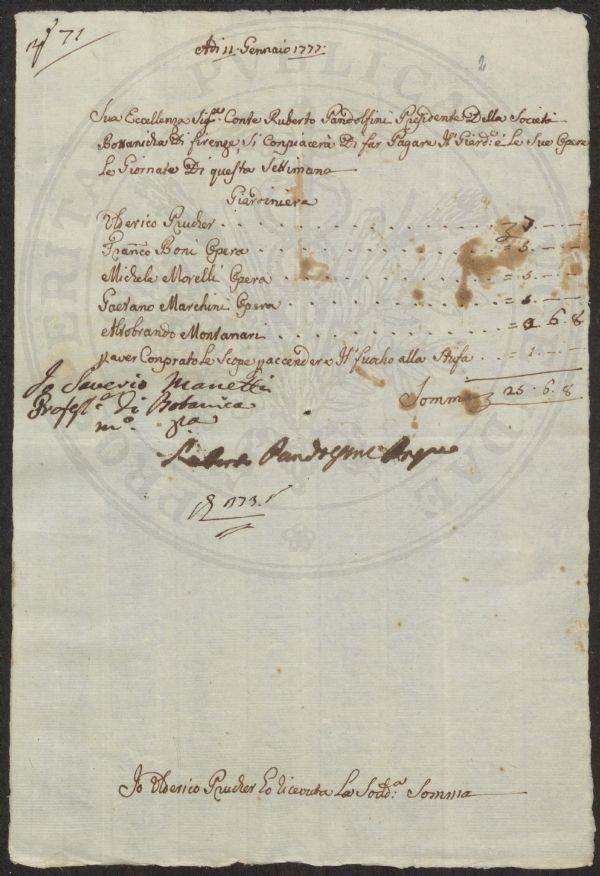 N° 71
Adi 11. Gennaio 1777:
2
Sua Eccellenza Sig.re Conte Ruberto Pandolfini Presidente Della Società
Bottanicha Di firenze Si Conpiacerà Di far Pagare Al Giard.e e Le Sue Opere
Le Giornate Di questa Settimana
Giardiniera
Ulderico Prucher . . . 7 . — —
Franco Boni Opera . . . = 5 . — —
Michele Morelli Opera . . . = 5 . — —
Gaetano Marchini Opera . . . — —
Aldobrando Montanari . . . 6 . 8
p aver Conprato le Scope p accendere Il fuocho alla Stufa . . = 1 . — —
Somma 25 . 6 . 8
Io Saverio Manetti
Profess.e di Botanica
m.o p.a
Ruberto Pandolfini
173
Io Ulderico Prucher Ho Riceuta La Sodd.a Somma